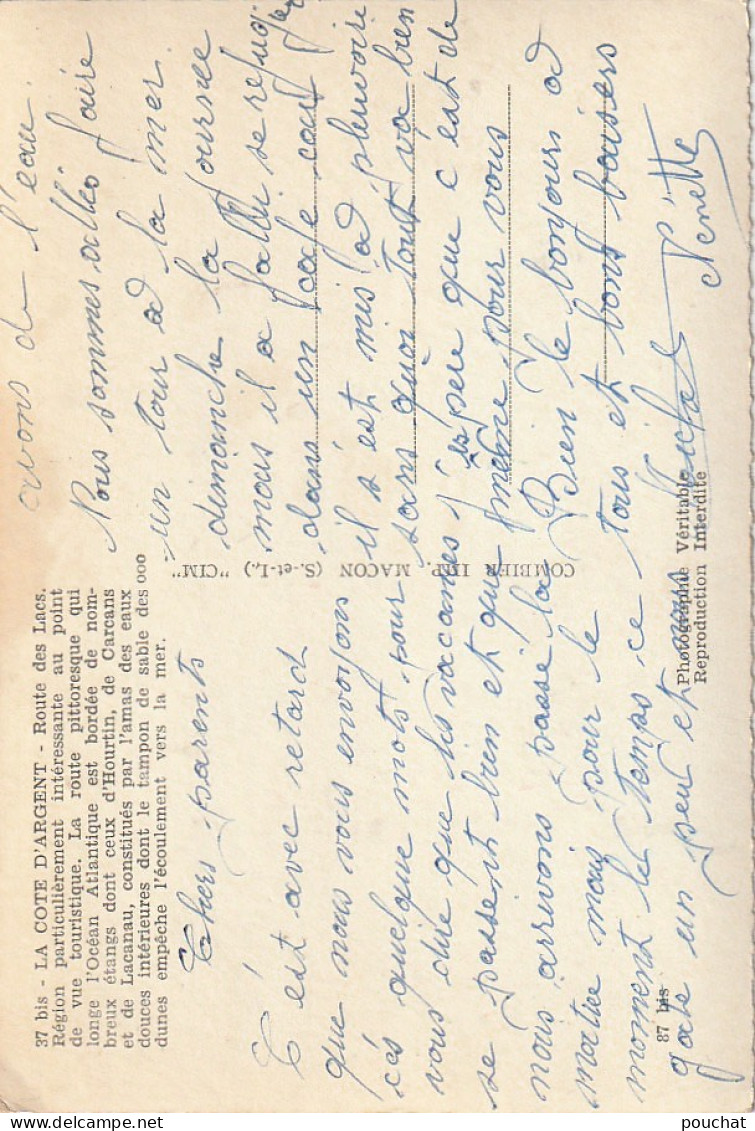 37 bis - LA COTE D'ARGENT - Route des Lacs.
Région particulièrement intéressante au point
de vue touristique. La route pittoresque qui
longe l'Océan Atlantique est bordée de nom-
breux étangs dont ceux d'Hourtin, de Carcans
et de Lacanau, constitués par l'amas des eaux
douces intérieures dont le tampon de sable des
dunes empêche l'écoulement vers la mer.
ooo
Chers parents
C'est avec retard
que nous vous envoyons
ces quelque mots pour
vous dire que les vacances
se passent bien et que
nous arrivons passé la
moitiée mais pour le
moment le temps ce
gate un peu et nous
avons de l'eau.
Nous sommes allés faire
un tour a la mer
dimanche la journee
mais il a fallu se refugier
dans un café car
il s'est mis a pleuvoire
sans quoi tout va bien
j'espère que c'est de
même pour vous
Bien le bonjour a
tous et bons baisers
Nénette
COMBIER IMP. MACON (S.-et-L.) "CIM"
37 bis
Photographie Véritable
Reproduction Interdite
pouchat